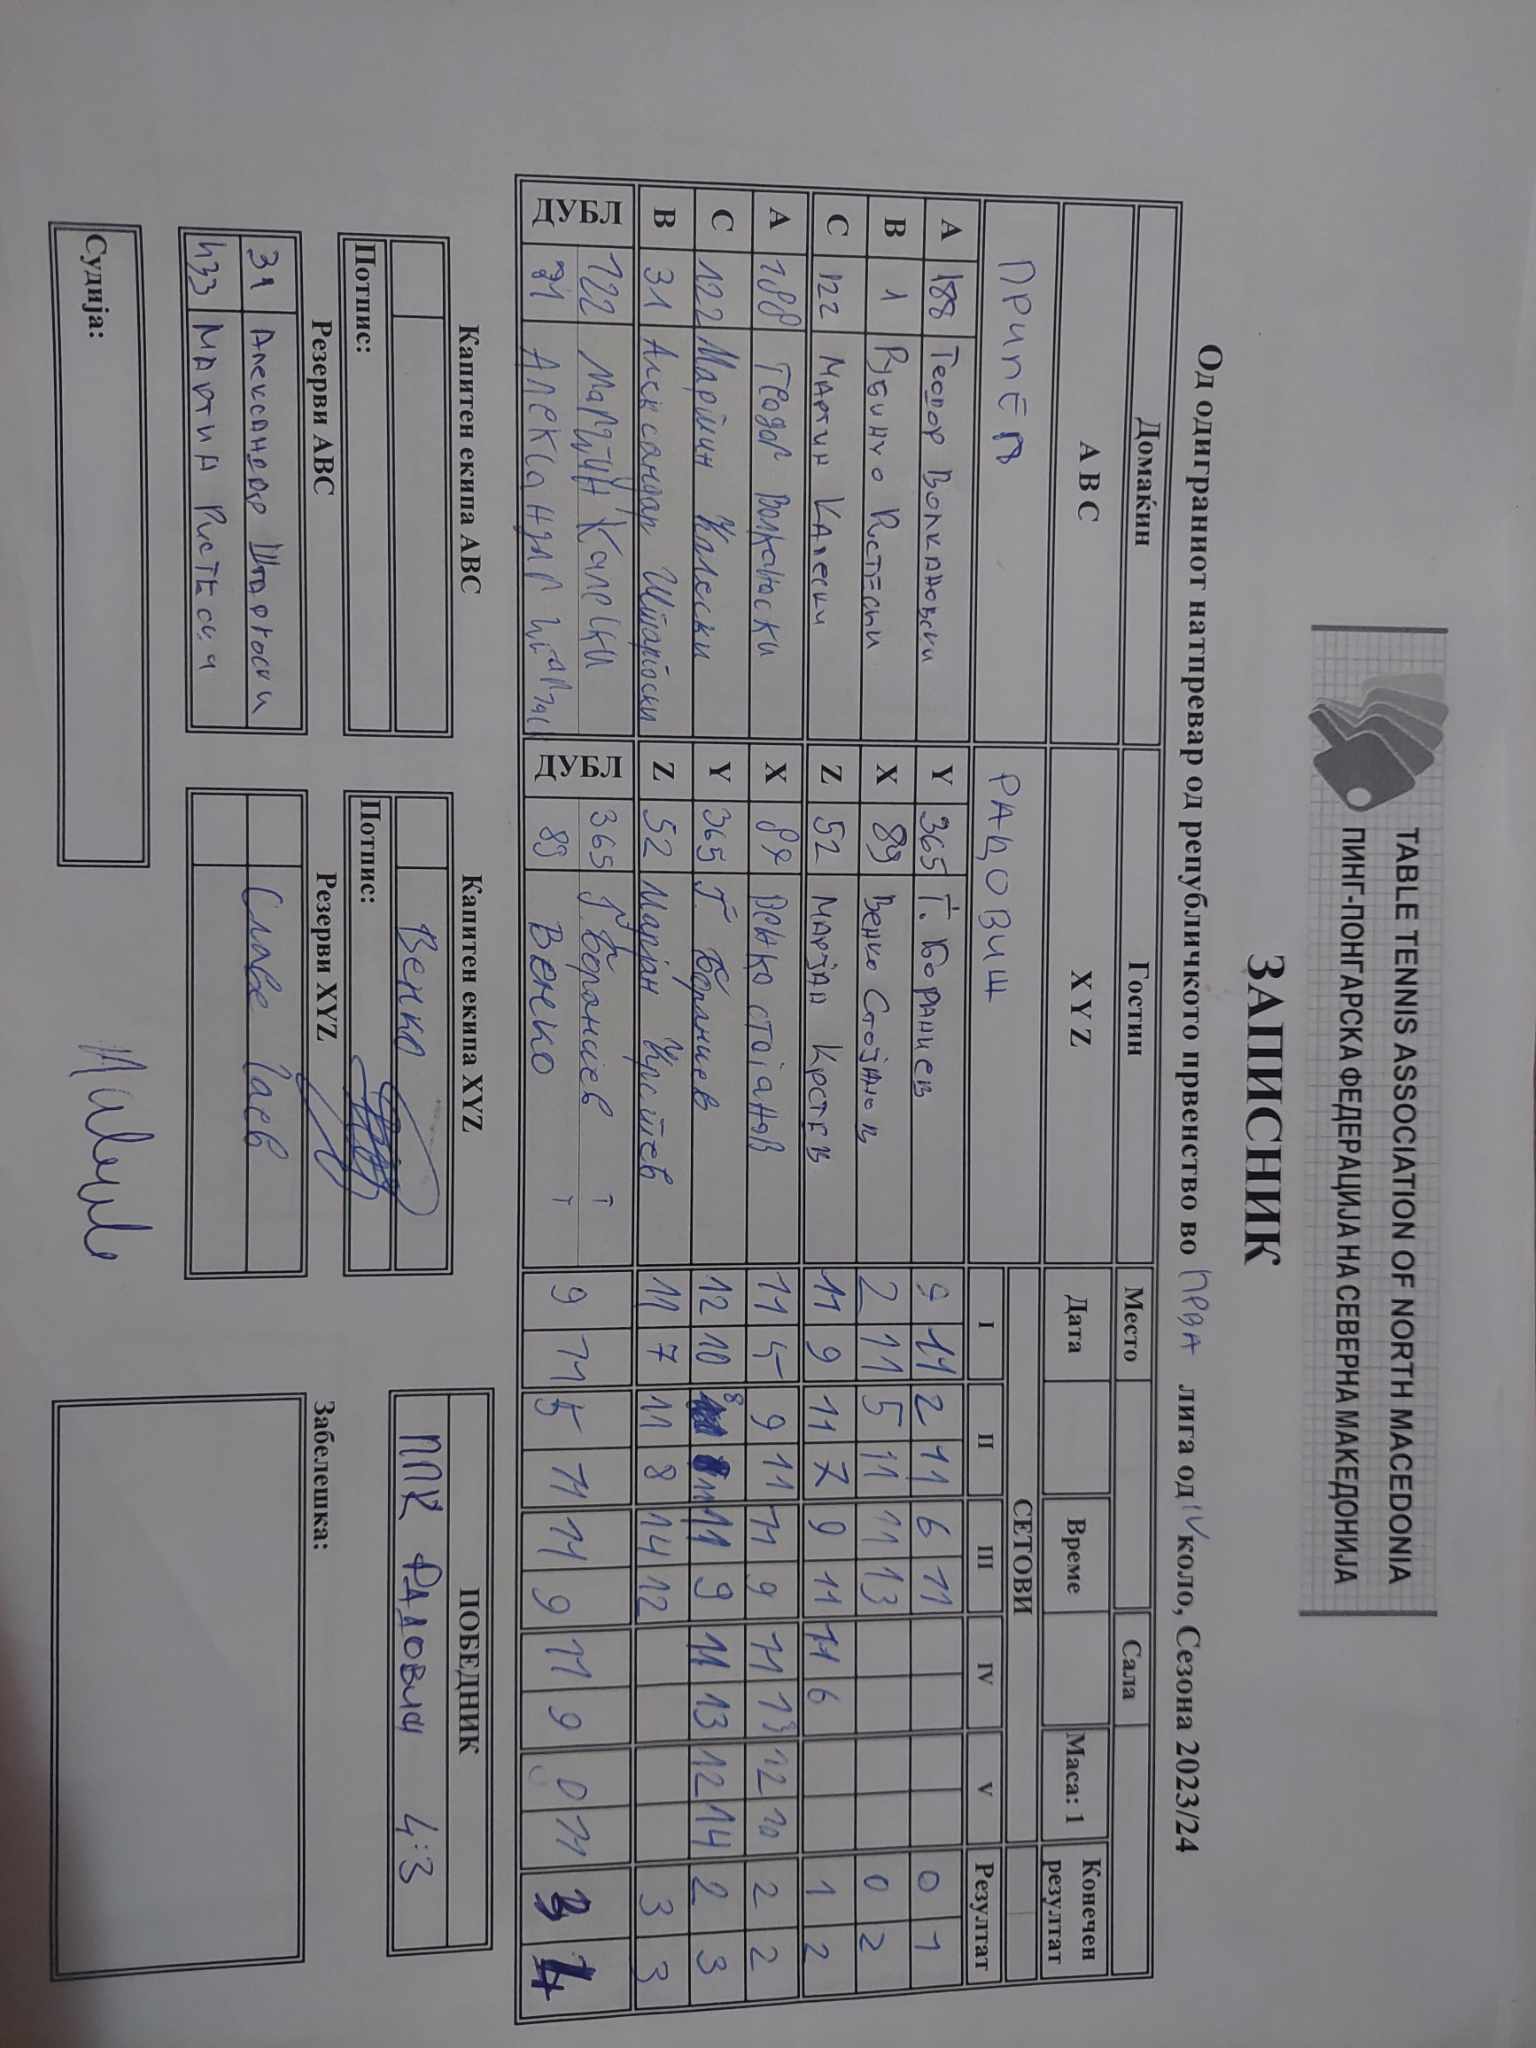 TABLE TENNIS ASSOCIATION OF NORTH MACEDONIA
ПИНГ-ПОНГАРСКА ФЕДЕРАЦИЈА НА СЕВЕРНА МАКЕДОНИЈА
ЗАПИСНИК
Од одиграниот натпревар од републичкото првенство во ПРВА лига од IV коло, Сезона 2023/24
Домаќин Гостин Место Сала
A B C X Y Z Дата Време Маса: 1 Конечен резултат
ПРИЛЕП РАДОВИШ СЕТОВИ
I II III IV V Резултат
A 188 Теодор Y 365 Г. БОРАНИЕВ 9 11 2 11 6 11 0 1
B 1 X 89 Венко Стојанов 2 11 5 11 11 13 0 2
C 122 МАРТИН КАЛЕСКИ Z 52 МАРЈАН КРСТЕВ 11 9 11 7 9 11 11 6 1 2
A 188 ТЕОДОР X 89 ВЕНКО СТОЈАНОВ 11 5 9 11 11 9 11 13 12 10 2 2
C 122 Мартин Калески Y 365 Г. Бораниев 12 10 8 11 11 9 11 13 12 14 2 3
B 31 Александар Штаркоски Z 52 Марјан Крстев 11 7 11 8 14 12 3 3
ДУБЛ 122 МАРТИН КАЛЕСКИ ДУБЛ 365 Г. Бораниев 9 11 5 11 11 9 11 9 0 11 3 4
31 АЛЕКСАНДАР 89 ВЕНКО
Капитен екипа ABC Капитен екипа XYZ ПОБЕДНИК
Венко ППК РАДОВИШ 4:3
Потпис: Потпис:
Резерви ABC Резерви XYZ Забелешка:
31 Александар Штаркоски Славе Гаев
433
Судија: